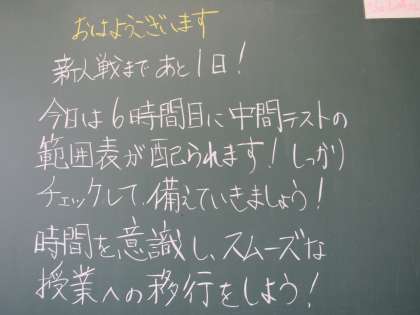 おはようございます
新人戦まであと1日!
今日は6時間目に中間テストの
範囲表が配られます!しっかり
チェックして、備えていきましょう!
時間を意識し、スムーズな
授業への移行をしよう!